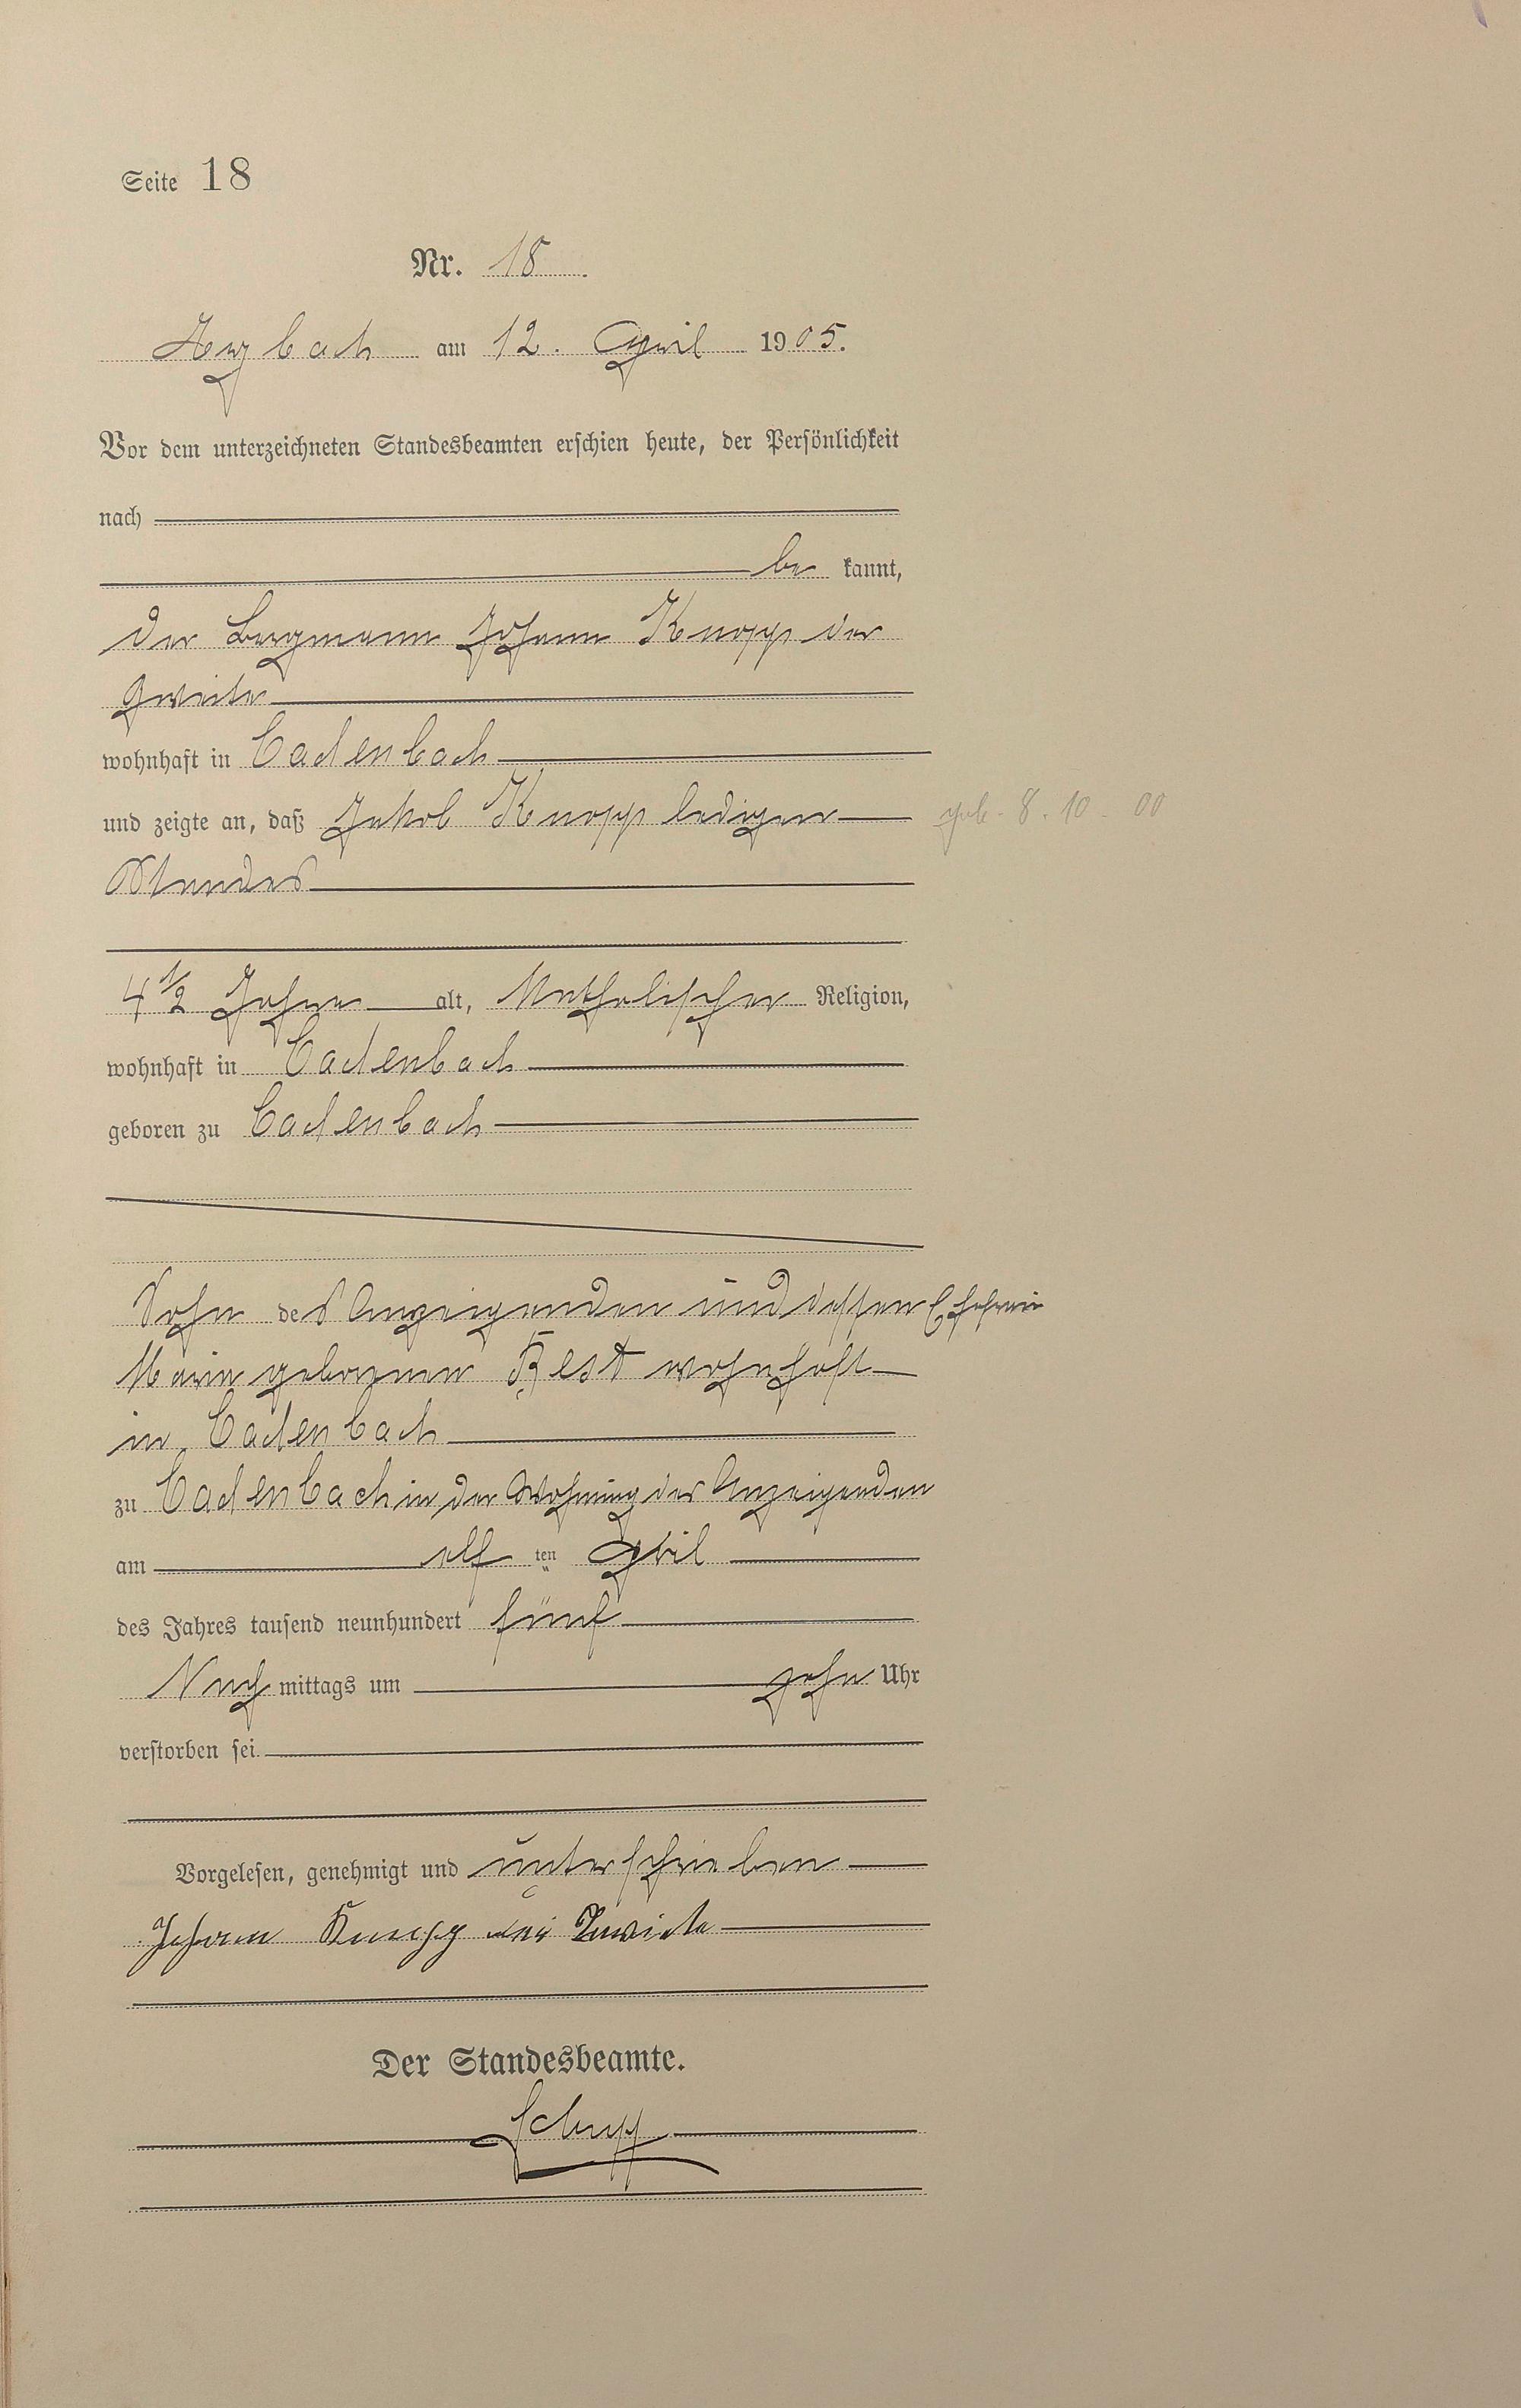 Seite 18
Nr. 18
Arzbach am 12. April 1905.
Vor dem unterzeichneten Standesbeamten erschien heute, der Persönlichkeit
nach
be kannt,
der Bergmann Johann Knopp der
Zweite
wohnhaft in Cadenbach
und zeigte an, daß Jakob Knopp ledigen geb. 8. 10. 00
Standes
4 1/2 Jahre alt, Katholischer Religion,
wohnhaft in Cadenbach
geboren zu Cadenbach
Sohn des Anzeigenden und dessen Ehefrau
Maria geborenen Best wohnhaft
in Cadenbach
zu Cadenbach in der Wohnung des Anzeigenden
am elf ten April
des Jahres tausend neunhundert fünf
Nach mittags um zehn Uhr
verstorben sei.
Vorgelesen, genehmigt und unterschrieben
Johann Knopp der Zweite
Der Standesbeamte.
Schupp